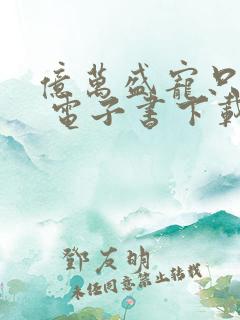 億萬盛寵只
電子書下載
鄧友明
未经同意禁止转载